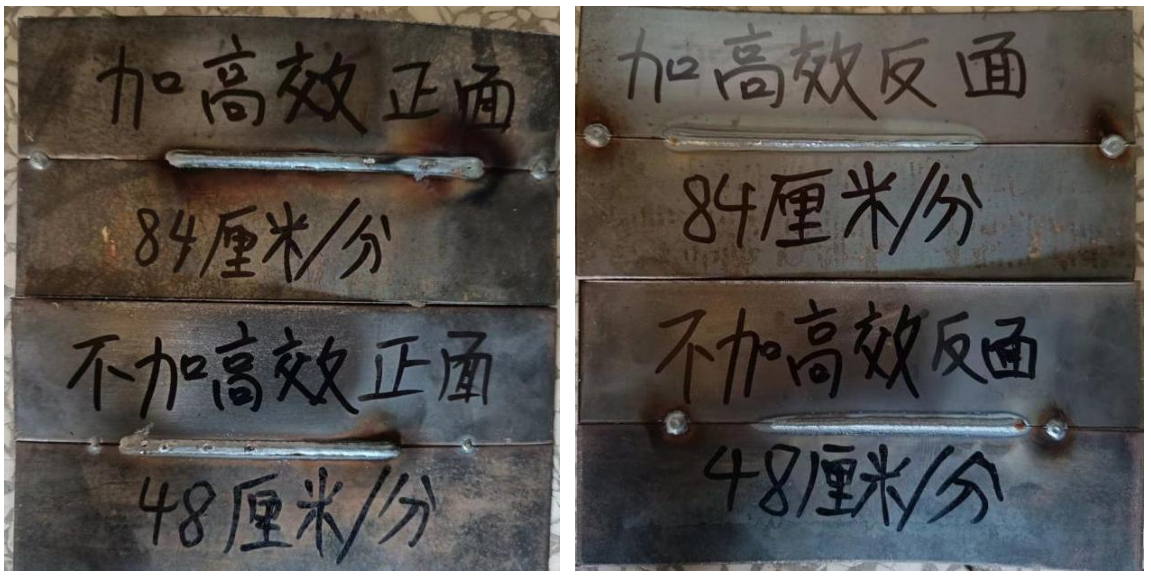 加高效正面
84厘米/分
不加高效正面
48厘米/分
加高效反面
84厘米/分
不加高效反面
48厘米/分